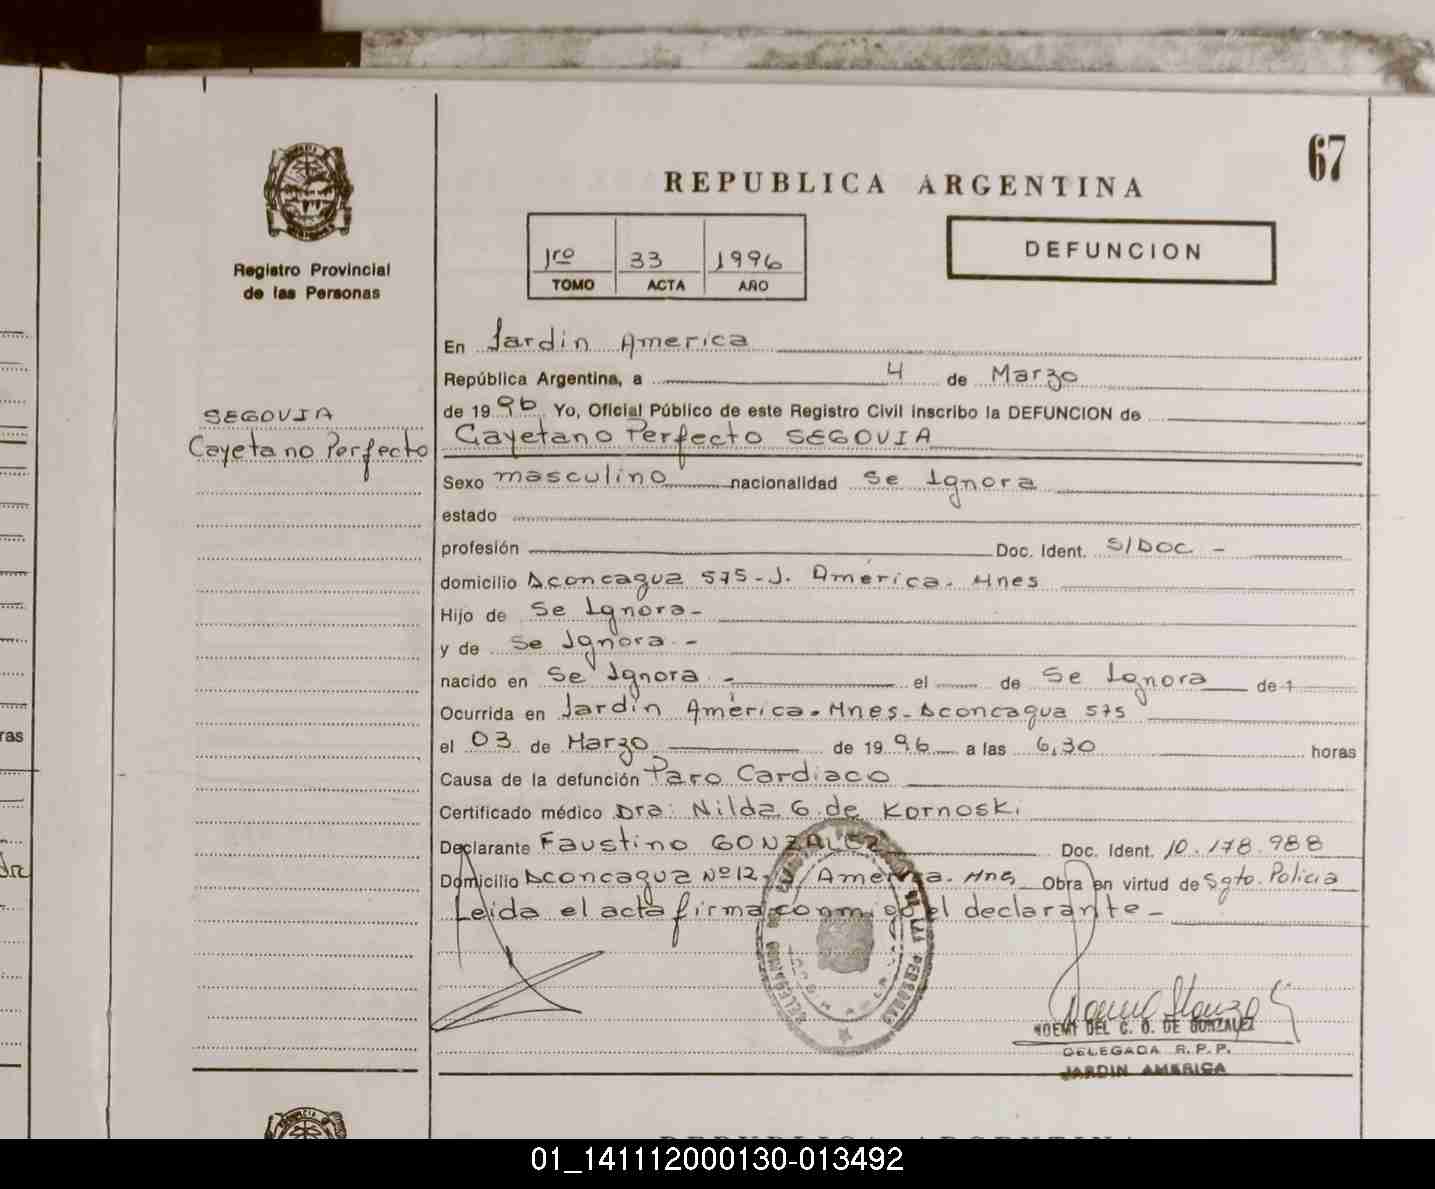 67
REPUBLICA ARGENTINA
Registro Provincial
de las Personas
1ro 33 1996
TOMO ACTA AÑO
DEFUNCION
SEGOVIA
Cayetano Perfecto
En Jardin America
República Argentina, a 4 de Marzo
de 1996 Yo, Oficial Público de este Registro Civil inscribo la DEFUNCION de
Cayetano Perfecto SEGOVIA
Sexo masculino nacionalidad se Ignora
estado
profesión Doc. Ident. S/DOC -
domicilio Aconcagua 575 - J. América. Mnes
Hijo de Se Ignora -
y de se Ignora -
nacido en Se Ignora - el de Se Ignora de 1
Ocurrida en Jardin América. Mnes - Aconcagua 575
el 03 de Marzo de 1996 a las 6,30 horas
Causa de la defunción Paro Cardiaco
Certificado médico Dra: Nilda G. de Kornoski
Declarante Faustino GONZALEZ Doc. Ident. 10.178.988
Domicilio Aconcagua Nº 12 America. Mnes Obra en virtud de Sgto. Policia
Leida el acta firma conmigo el declarante -
DE LAS PERSONAS
NOEMY DEL C. O. DE GONZALEZ
DELEGADA R.P.P.
JARDIN AMERICA
REPUBLICA ARGENTINA
01_141112000130-013492